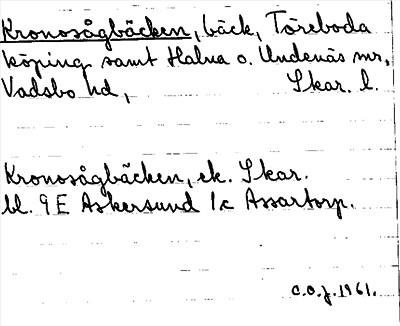 Kronosågbäcken, bäck, Töreboda
köping samt Halna o. Undenäs snr,
Vadsbo hd, Skar. l.
Kronosågbäcken, ek. Skar.
bl. 9E Askersund 1c Assartorp.
C.O.J. 1961.